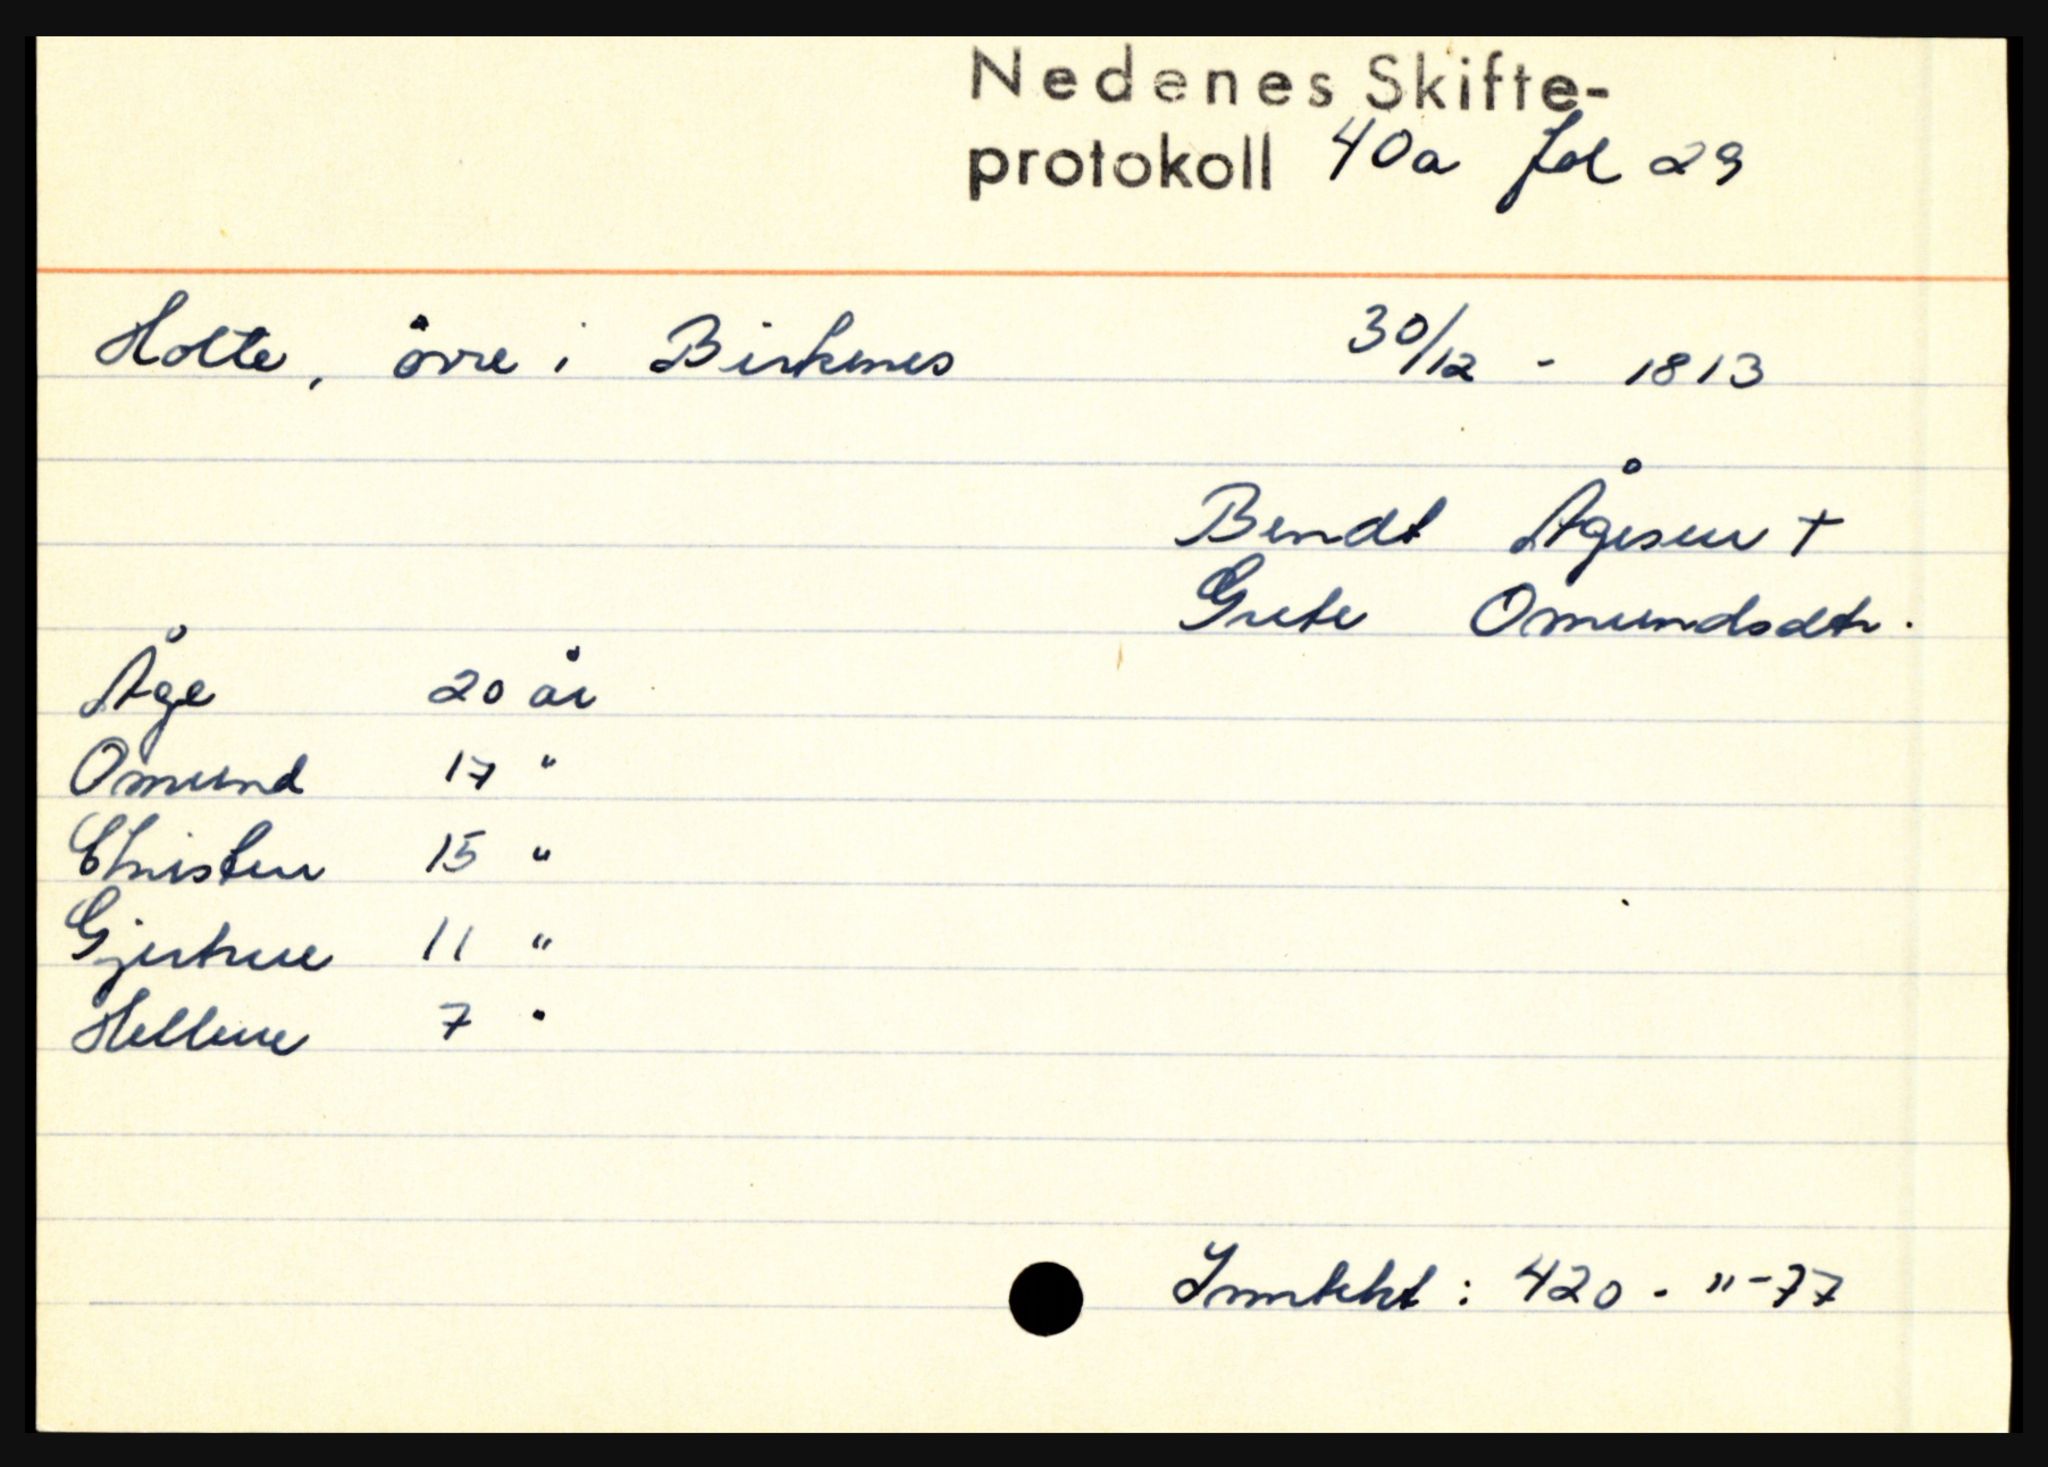 Nedenes Skifte-
protokoll 40a fol 29
Holte, övre i Birkenes 30/12 - 1813
Bendt Ågesen +
Grete Omundsdtr.
Åge 20 år
Omund 17 "
Christen 15 "
Gjertrue 11 "
Hellene 7 "
Inntekt : 420 - " - 77